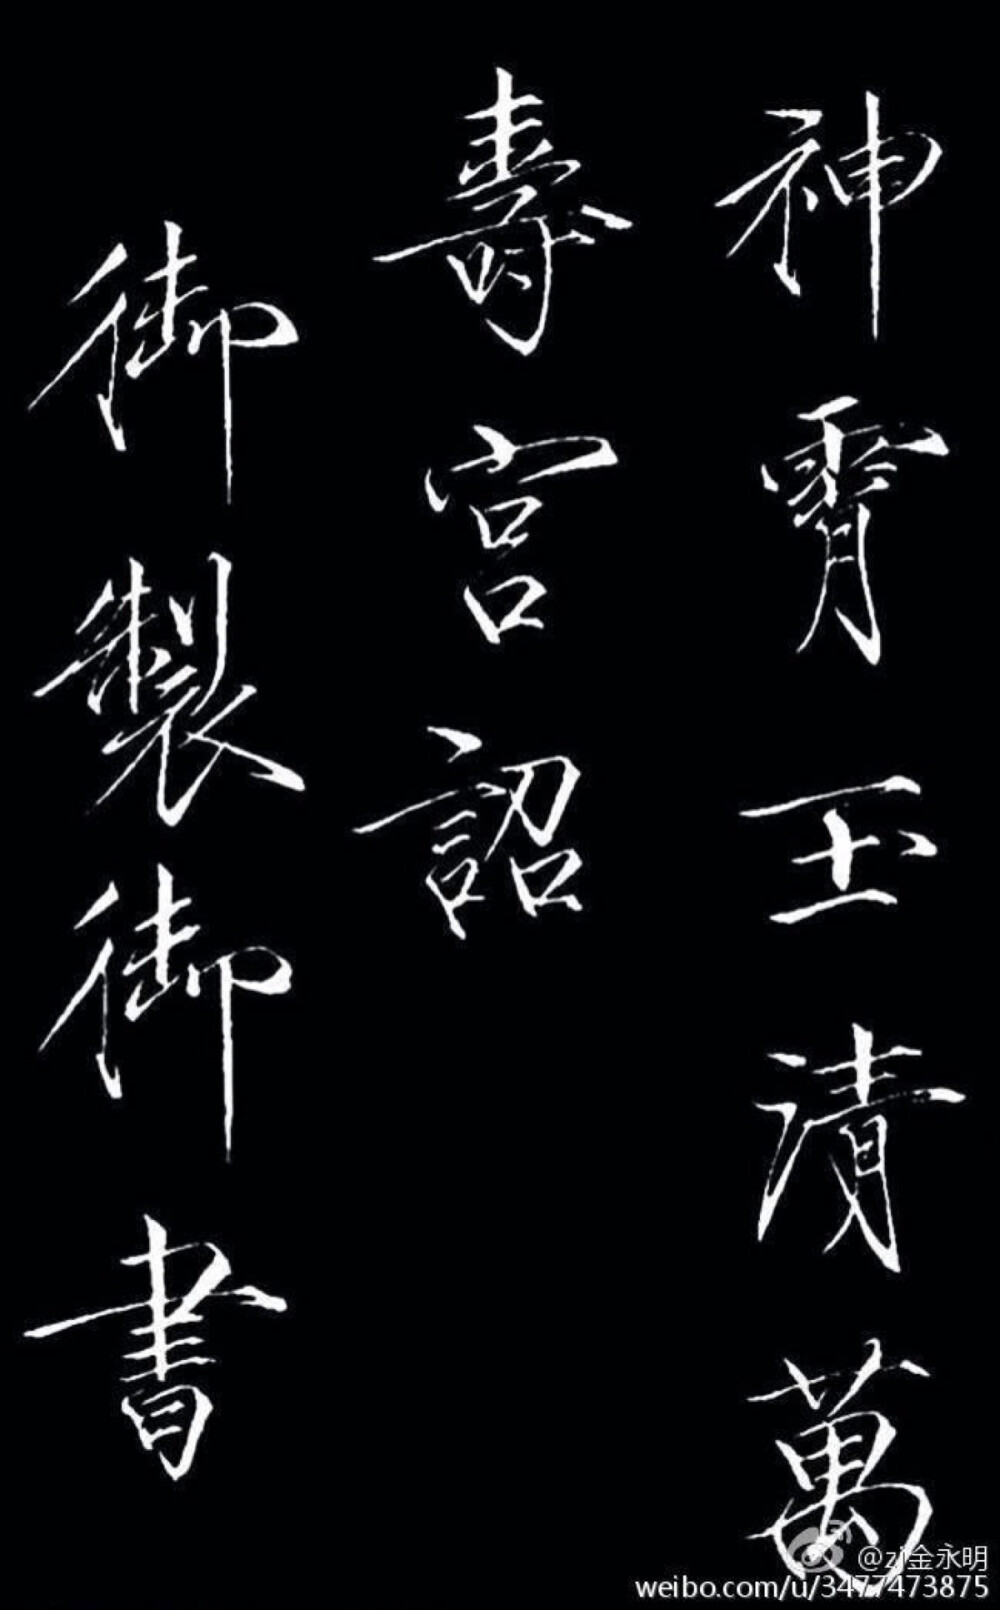 神霄玉清萬
壽宮詔
御製御書
@zj金永明
weibo.com/u/3477473875